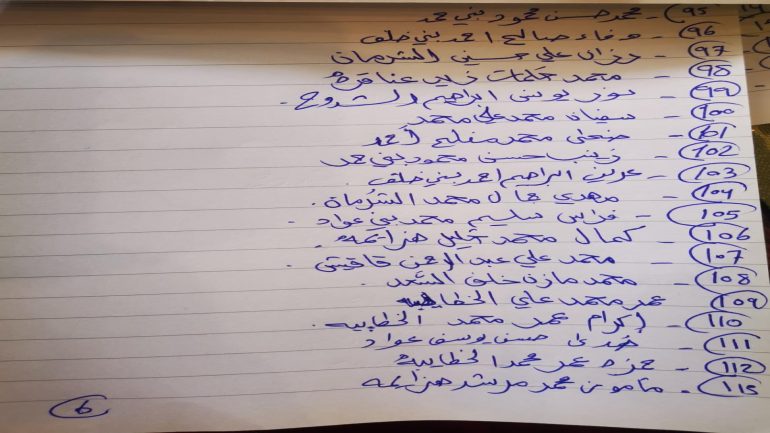 95 - محمد حسن محمود بني حمد
96 - وفاء صالح احمد بني خلف
97 - رزان علي حسين الشرمان
98 - محمد زايد عناقرة
99 - نور يونس ابراهيم الشدوح.
100 - سفيان محمد علي محمد
101 - ضحى محمد مفلح احمد
102 - زينب حسن محمود بني حمد
103 - عرين ابراهيم احمد بني خلف.
104 - مهدي جمال محمد الشرمان.
105 - فراس سليم محمد بني عواد.
106 - كمال محمد خليل هزايمه.
107 - محمد علي عبد الرحمن قاقيش.
108 - محمد مازن خلف السعد.
109 عمر محمد علي الخطايبه
110 - إكرام عمر محمد الخطايبه.
111 - هدى حسن يوسف عواد
112 - حمزه عمر محمد الخطايبه
115 - مأمون محمد مرشد هزايمه
6